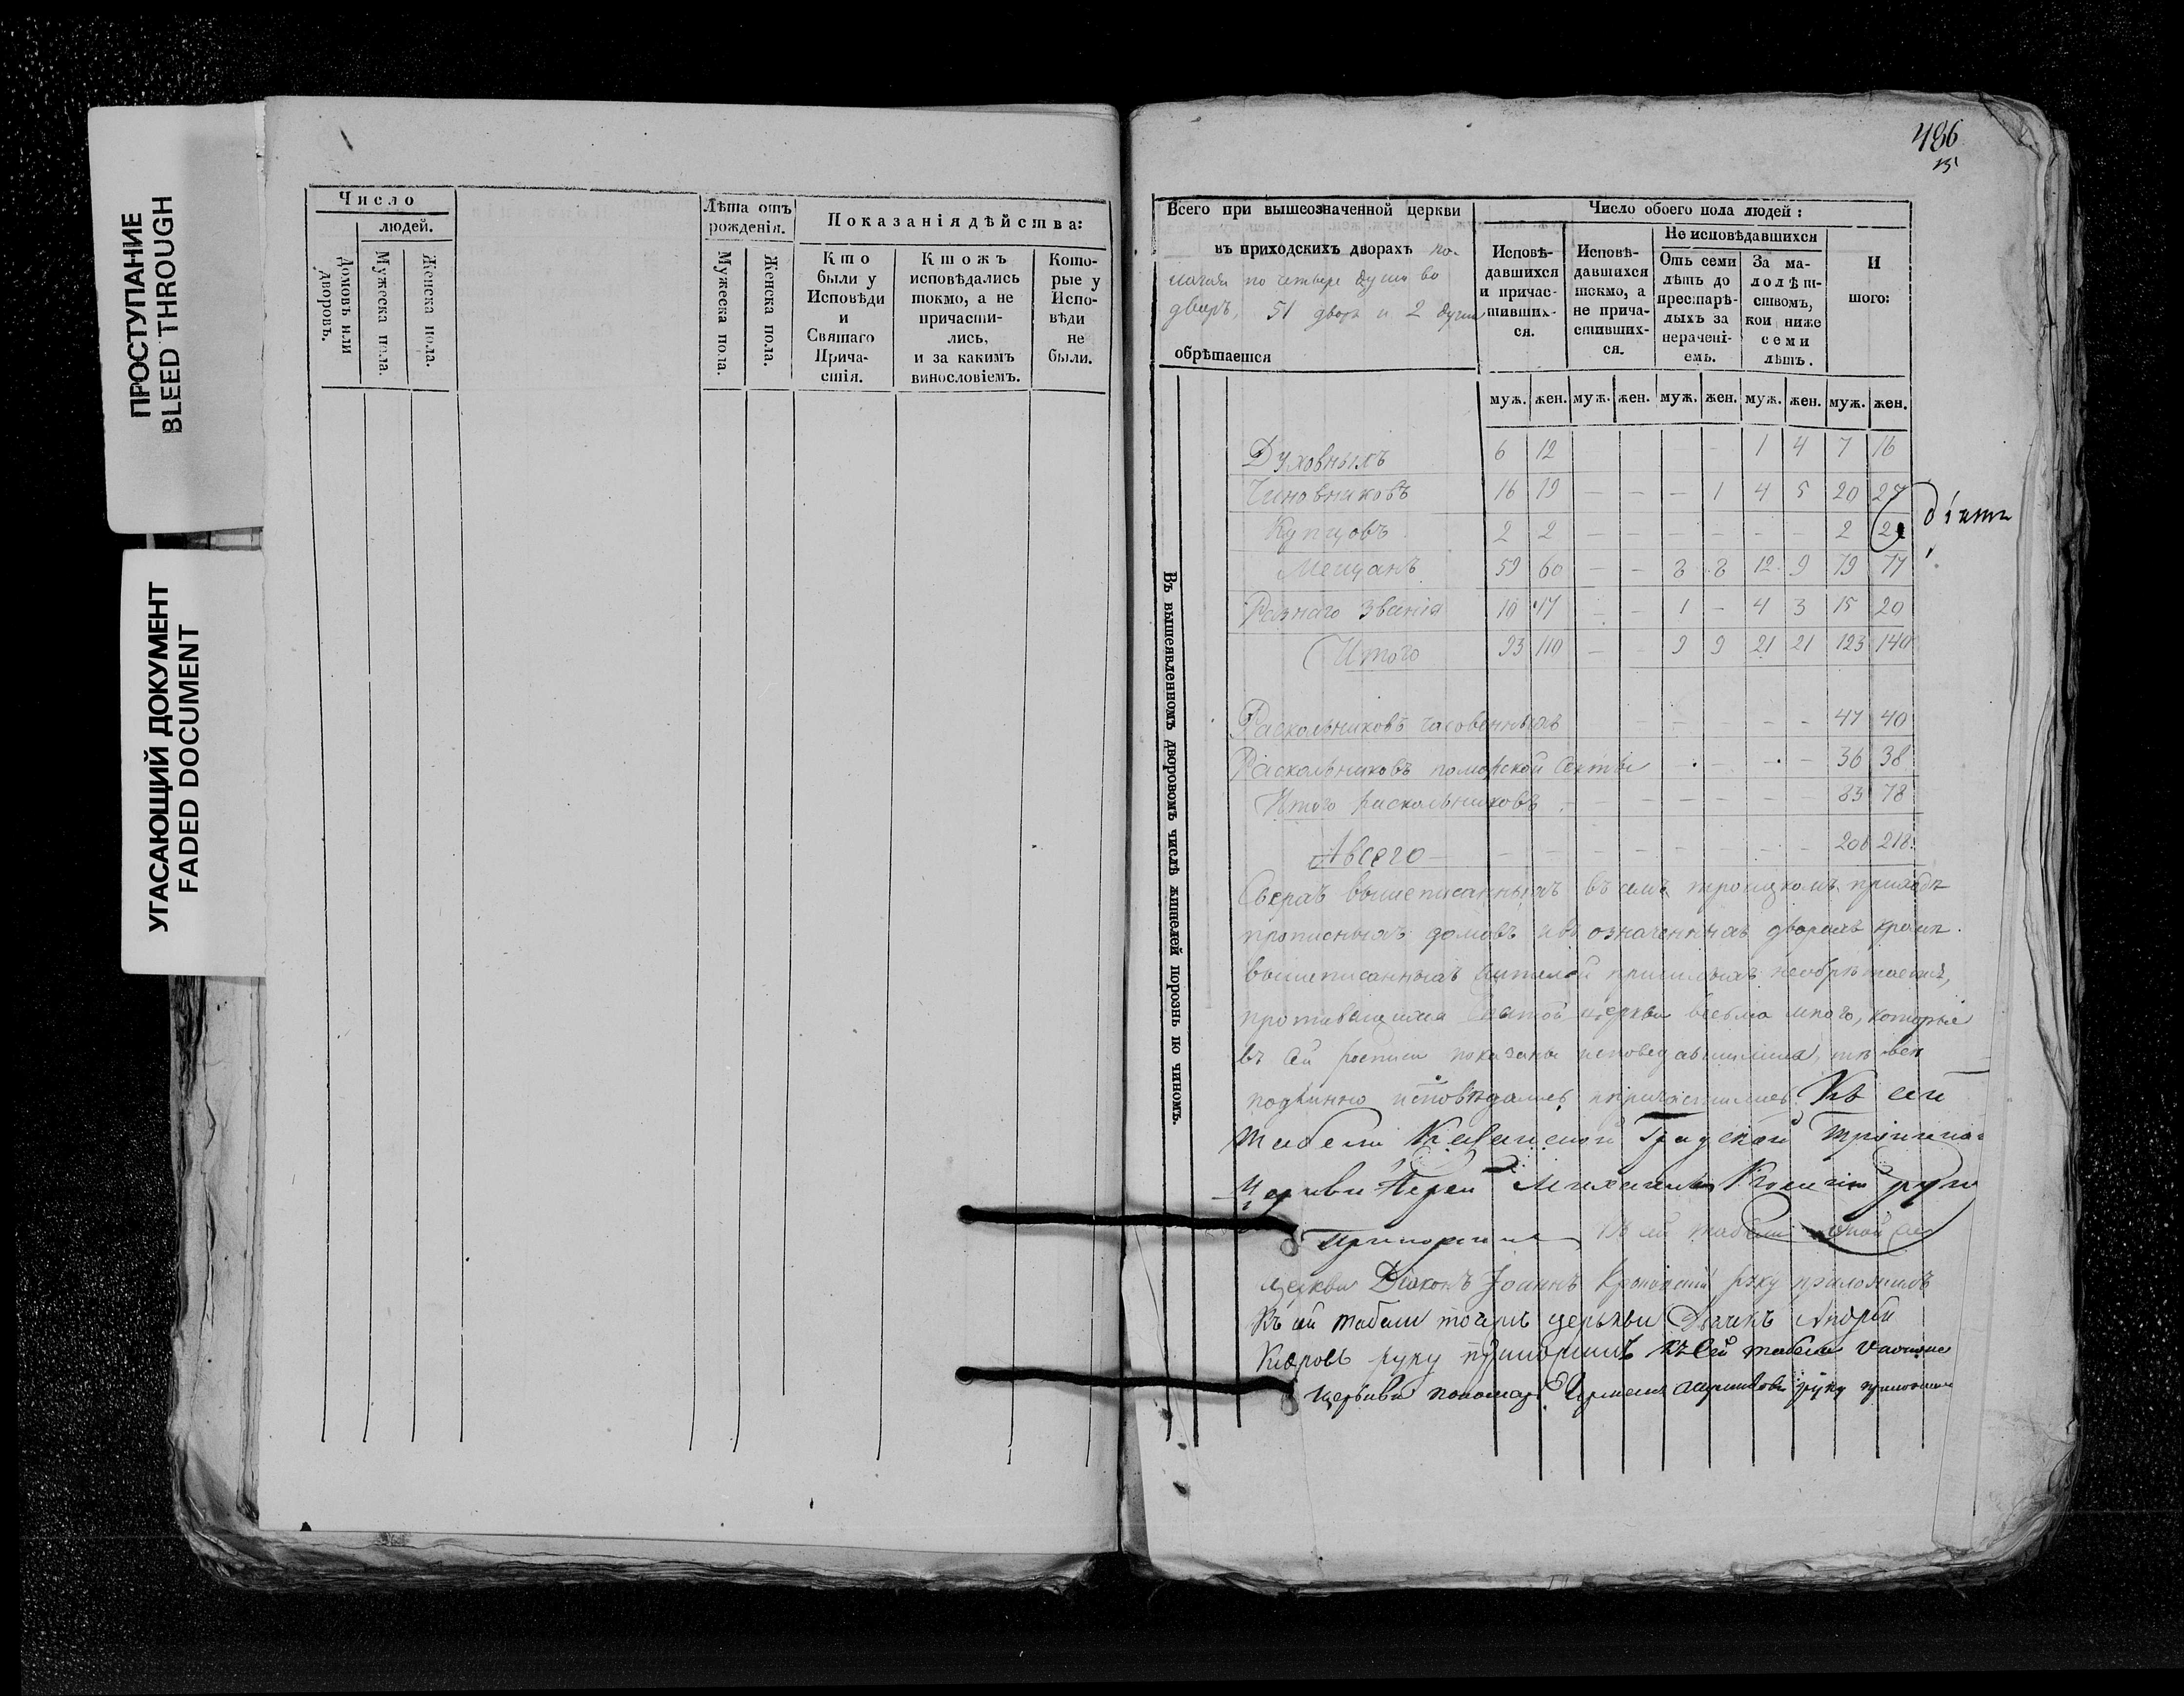 ПРОСТУПАНИЕ
BLEED THROUGH
УГАСАЮЩИЙ ДОКУМЕНТ
FADED DOCUMENT
Число
людей.
Домовъ или дворовъ.
Мужеска пола.
Женска пола.
Лѣта отъ рожденія.
Мужеска пола.
Женска пола.
Показанія дѣйства:
Кто были у Исповѣди и Святаго Прича-стія.
Кто жъ исповѣдались токмо, а не причасти-лись, и за какимъ винословіемъ.
Кото-рые у Испо-вѣди не были.
486
Всего при вышеозначенной церкви
въ приходскихъ дворахъ по-
лагая по четыре души во
дворъ, 51 дворъ и 2 души
обрѣтается
Число обоего пола людей:
Исповѣ-давшихся и причас-тивших-ся.
Исповѣ-давшихся токмо, а не прича-стивших-ся.
Не исповѣдавшихся
Отъ семи лѣтъ до престарѣ-лыхъ за нерачені-емъ.
За ма-лолѣт-ствомъ, кои ниже семи лѣтъ.
И шого:
муж. жен. муж. жен. муж. жен. муж. жен. муж. жен.
Въ вышеявленномъ дворовомъ числѣ жителей порознь по чиномъ.
Духовныхъ 6 12 – – – – 1 4 7 16
Чиновниковъ 16 19 – – – 1 4 5 20
Купцовъ 2 2 – – – – – – 2
Мещанъ 59 60 – – 8 8 12 9 79 77
Разнаго званія 10 17 – – 1 – 4 3 15 20
Итого 93 110 – – 9 9 21 21 123 140
Раскольниковъ часовенныхъ – – – – – 47 40
Раскольниковъ поморской секты – – – – 36 38
Итого раскольниковъ – – – – – – 83 78
А всего – – – – – – – 206 218.
Сверхъ вышеписанныхъ въ семъ троицкомъ приходѣ
прописныхъ домовъ и въ означенныхъ дворахъ кромѣ
вышеписанныхъ жителей пришлыхъ необрѣтается,
противящихся Святой церкви весьма много, которые
въ сей росписи показаны исповедавшимися, тѣ всѣ
подлинно исповѣдались и причастились. Къ сей
табели Градской
Церкви Іерей Михаилъ руку
приложилъ Къ сей табели
церкви Діаконъ Іоаннъ руку приложилъ
Къ сей табели тоежъ церкви Дьячекъ Андрей
руку приложилъ Къ сей табели
церкви пономарь руку приложилъ